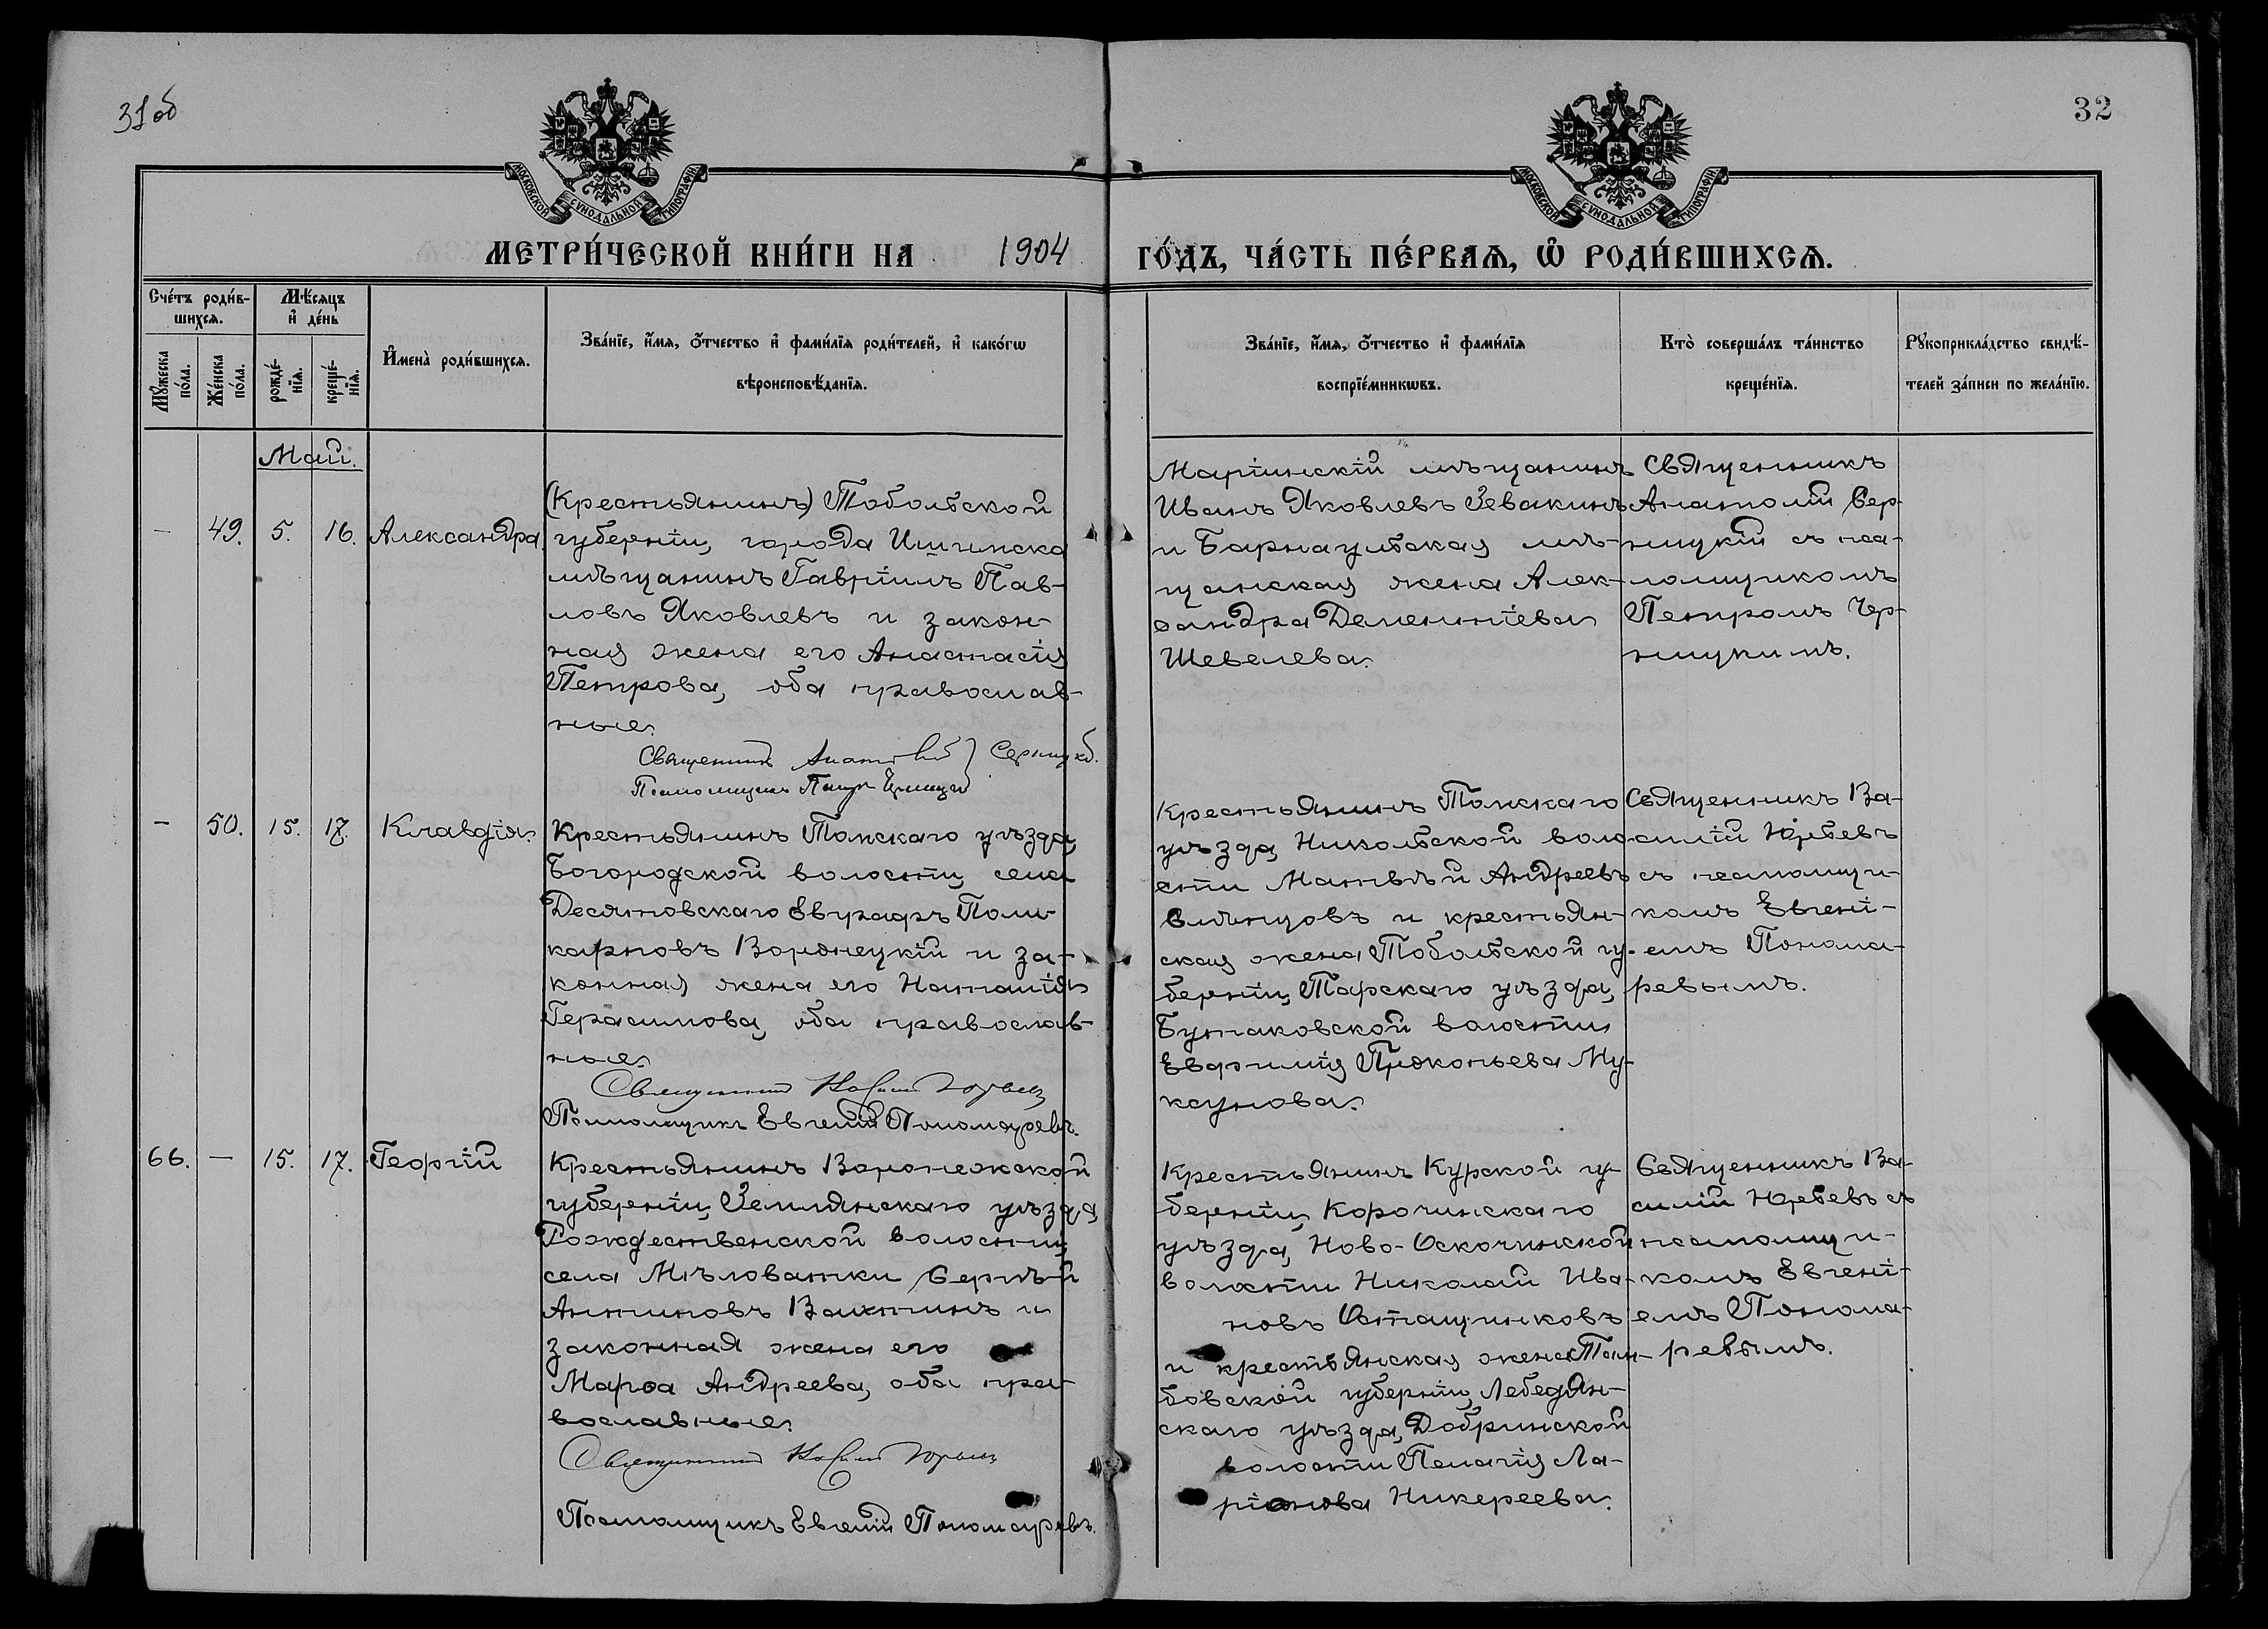 31 об
32
МОСКОВСКОЙ СУНОДАЛЬНОЙ ТИПОГРАФІИ
МОСКОВСКОЙ СУНОДАЛЬНОЙ ТИПОГРАФІИ
МЕТРИ́ЧЕСКОЙ КНИ́ГИ НА 1904 ГО́ДЪ, ЧА́СТЬ ПЕ́РВАѦ, Ѽ РОДИ́ВШИХСѦ.
Сче́тъ роди́в-
шихсѧ.
Мꙋ́жеска по́ла.
Же́нска по́ла.
Мѣ́сѧцъ
и҆ де́нь
рожде́-
нїѧ.
креще́-
нїѧ.
И҆мена̀ роди́вшихсѧ.
Зва́нїе, и҆́мѧ, ѻ҆́тчество и҆ фами́лїѧ роди́телей, и҆ како́гѡ
вѣроисповѣ́данїѧ.
Зва́нїе, и҆́мѧ, ѻ҆́тчество и҆ фами́лїѧ
воспрїе́мникѡвъ.
Кто̀ соверша́лъ та́инство
креще́нїѧ.
Рꙋкоприкла́дство свидѣ́-
телей за́писи по жела́нїю.
Май.
— 49. 5. 16. Александра.
(Крестьянинъ) Тобольской
губерніи, города Ишимска
мѣщанинъ Гавріилъ Пав-
ловъ Яковлевъ и закон-
ная жена его Анастасія
Петрова, оба православ-
ные.
Священникъ Анатолій Серницкій.
Псаломщикъ Петръ Черницкій
Маріинскій мѣщанинъ
Иванъ Яковлевъ Зевакинъ
и Барнаульская мѣ-
щанская жена Алек-
сандра Дементіева
Шевелева.
Священникъ
Анатолій Сер-
ницкій съ пса-
ломщикомъ
Петромъ Чер-
ницкимъ.
— 50. 15. 17. Клавдія.
Крестьянинъ Томскаго уѣзда,
Богородской волости, села
Десятовскаго Евграфъ Поли-
карповъ Воронецкій и за-
конная жена его Наталія
Герасимова, оба православ-
ные.
Священникъ Василій Юрьевъ
Псаломщикъ Евгеній Пономаревъ.
Крестьянинъ Томскаго
уѣзда, Никольской воло-
сти Матвѣй Андреевъ
Слѣпцовъ и крестьян-
ская жена Тобольской гу-
берніи, Тарскаго уѣзда,
Бутаковской волости
Евфимія Прокопьева Му-
ксунова.
Священникъ Ва-
силій Юрьевъ
съ псаломщи-
комъ Евгені-
емъ Понома-
ревымъ.
66. — 15. 17. Георгій
Крестьянинъ Воронежской
губерніи, Землянскаго уѣзда,
Рождественской волости,
села Мѣловатки Сергѣй
Антиповъ Вахтинъ и
законная жена его
Марѳа Андреева, оба пра-
вославные.
Священникъ Василій Юрьевъ
Псаломщикъ Евгеній Пономаревъ.
Крестьянинъ Курской гу-
берніи, Корочинскаго
уѣзда, Ново-Оскочинской
волости Николай Ива-
новъ Осташинковъ
и крестьянская жена Там-
бовской губерніи, Лебедян-
скаго уѣзда, Добринской
волости Пелагія Ла-
ріонова Никереева.
Священникъ Ва-
силій Юрьевъ съ
псаломщи-
комъ Евгені-
емъ Понома-
ревымъ.